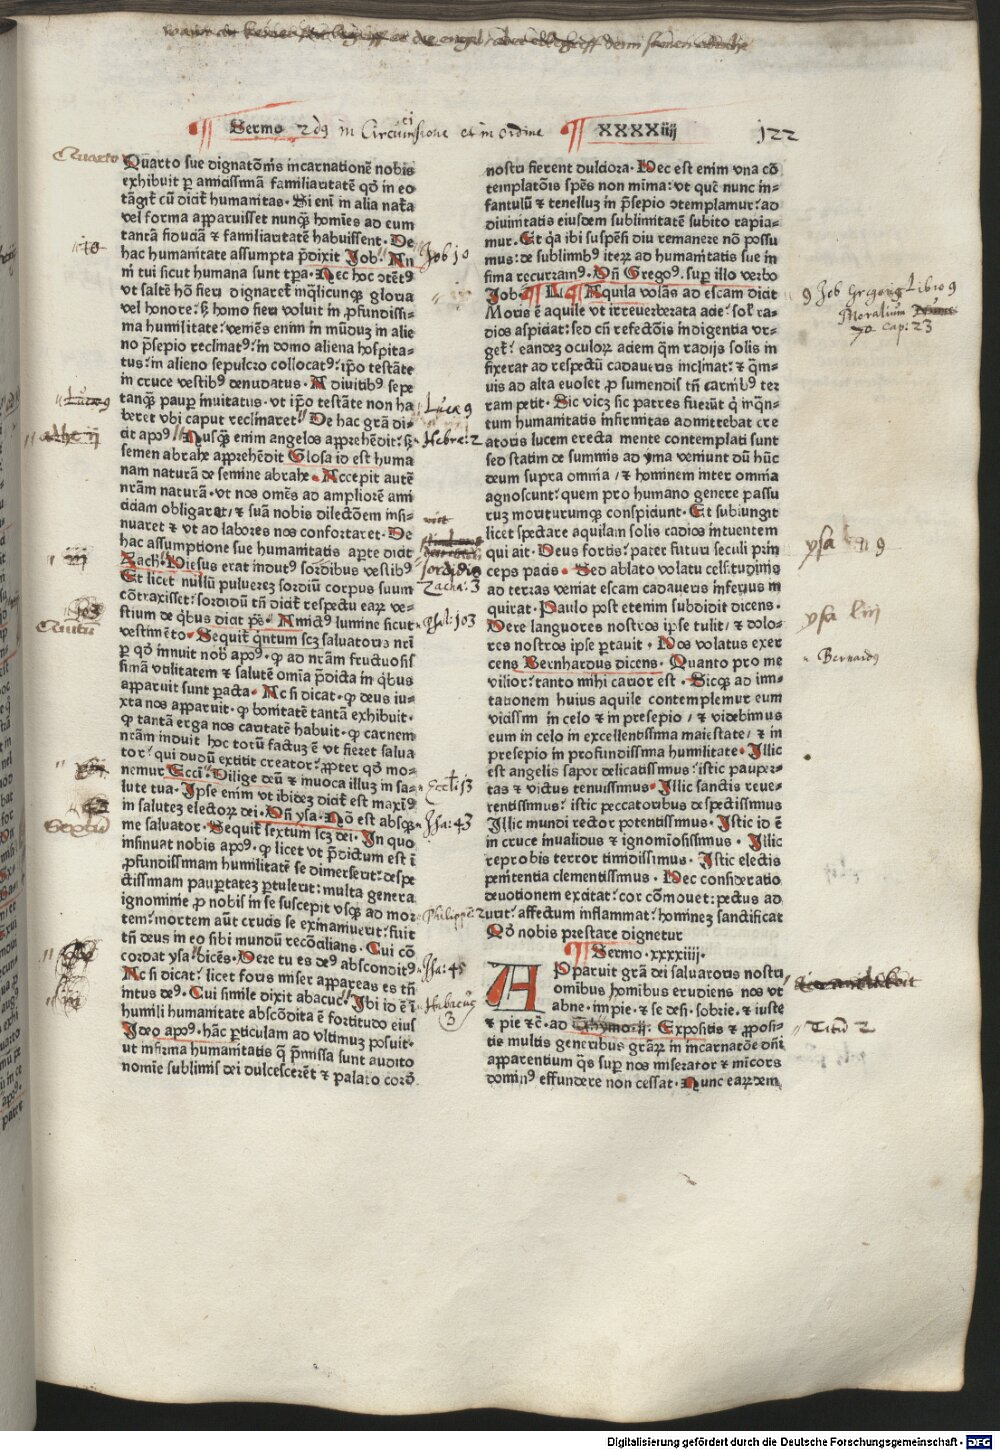 Sermo 2dꝯ in Circumsione et in ordine XXXXiiij 122
Quarto sue dignatōnis incarnationē nobis
exhibuit ꝑ amicissimā familiaritatē qḋ in eo
tāgit̄ cū dicit̄ humanitas. Si eni in alia nat̄a
vel forma apparuisset nunqᷓ homīes ad eum
tantā fiduciā ⁊ familiaritatē habuissent. De
hac humanitate assumpta p̄dixit Job. Nū
ni tui sicut humana sunt tp̄a. Nec hoc ↄtētꝰ
vt saltē hō fieri dignaret̄ in qͥlicunqꝫ gloria
vel honore: sꝫ homo fieri voluit in ꝓfundissi-
ma humilitate: veniēs enim in mūduꝫ in alie
no p̄sepio reclinatꝰ: in domo aliena hospita-
tus: in alieno sepulcro collocatꝰ: ip̄o testāte
in cruce vestibꝰ denudatus. A diuitibꝰ sepe
tanqᷓ pauꝑ inuitatus. vt ip̄o testāte non ha
beret vbi caput reclinaret. De hac gr̄a di-
cit apꝰ. Nusqᷓ enim angelos apprehēdit: sꝫ
semen abrahe apprehēdit Glosa id est huma
nam naturā de semine abrahe. Accepit autē
nr̄am naturā. vt nos om̄es ad ampliorē ami
ciciam obligaret, ⁊ suā nobis dilectōem insi-
nuaret ⁊ vt ad labores nos confortaret. De
hac assumptione sue humanitatis aperte dicit
Zach. Jhesus erat indutꝰ sordibus vestibꝰ
Et licet nullū puluereꝫ sordiū corpus suum
cōtraxisset: sordidū tn̄ dicit̄ respectu earꝝ ve-
stium de qͥbus dicit ps̄. Amictꝰ lumine sicut
vestimēto. Sequit̄ qͥntum scꝫ saluatoris nr̄i
ꝑ qḋ innuit nob̄ apꝰ. ꝙ ad nr̄am fructuosis
simā vtilitatem ⁊ salutē om̄ia p̄dicta in qͥbus
apparuit sunt ꝑacta. Ac si dicat. ꝙ deus iu-
xta nos apparuit. ꝙ bonitatē tantā exhibuit.
ꝙ tantā erga nos caritatē habuit. ꝙ carnem
nr̄am induit hoc totū factuꝫ ē vt fieret salua
tor: qui dudū extitit creator: ꝓpter qḋ mo-
nemur Ecci. Dilige deū ⁊ inuoca illuꝫ in sa-
lute tua. Ipse enim vt ibideꝫ dicit̄ est maxīꝰ
in saluteꝫ electorꝝ dei. Vn̄ ysa. Nō est absqꝫ
me saluator. Sequit̄ sextum scꝫ dei. In quo
insinuat nobis apꝰ. ꝙ licet vt p̄dictum est ī
ꝓfundissimam humilitatē se dimerserit: despe
ctissimam pauꝑtateꝫ ꝑtulerit: multa genera
ignominie ꝓ nobis in se suscepit vsqꝫ ad mor
tem: mortem aūt crucis se exinaniuerit: fuit
tn̄ deus in eo sibi mundū recōcilians. Cui cō
cordat ysa. dicēs. Vere tu es deꝰ absconditꝰ
Ac si dicat: licet foris miser appareas es tn̄
intus deꝰ. Cui simile dixit abacuc. Ibi id ē ī
humili humanitate abscōdita ē fortitudo eius
Ideo apꝰ. hāc ꝑticulam ad vltimuꝫ posuit.
vt infirma humanitatis q̄ p̄missa sunt audito
nomīe sublimis dei dulcescerēt ⁊ palato cord̄.
nostri fierent dulciora. Hec est enim vna cō
templatōis spēs non mima: vt quē nunc in-
fantulū ⁊ tenelluꝫ in p̄sepio ↄtemplamur: ad
diuinitatis eiusdem sublimitatē subito rapia-
mur. Et qͥa ibi suspēsi diu remanere nō possu
mus: de sublimibꝰ iteꝝ ad humanitatis sue in
fima recurram̄ꝰ. Vn̄ Gregoꝰ. suꝑ illo verbo
Job. Aquila volās ad escam dicit
Moris ē aquile vt irreuerberata acie: soꝉ ra-
dios aspiciat: sed cū refectōis indigentia vr-
get̄: eandeꝫ oculoꝝ aciem qᷓm radijs solis in
fixerat ad respectū cadaueris inclinat: ⁊ qᷓm-
uis ad alta euolet ꝓ sumendis tn̄ carnibꝰ ter
ram petit. Sic vicꝫ sic patres fuerūt qͥ inqͣn-
tum humanitatis infirmitas admittebat cre
atoris lucem erecta mente contemplati sunt
sed statim de summis ad yma veniunt dū hūc
deum supra omnia, ⁊ hominem inter omnia
agnoscunt: quem pro humano genere passu
ruꝫ moriturumqꝫ conspiciunt. Et subiungit
licet spectare aquilam solis radios intuentem
qui ait. Deus fortis: pater futuri seculi prin
ceps pacis. Sed ablato volatu celsitudinis
ad terras veniat escam cadaueris inferius in
quirat. Paulo post etenim subdidit dicens.
Vere languores nostros ipse tulit, ⁊ dolo-
res nostros ipse ꝑtauit. Nos volatus exer
cens Bernhardus dicens. Quanto pro me
vilior: tanto mihi carior est. Sicqꝫ ad imi-
tationem huius aquile contemplemur eum
vicissim in celo ⁊ in presepio, ⁊ videbimus
eum in celo in excellentissima maiestate, ⁊ in
presepio in profundissima humilitate. Illic
est angelis sapor delicatissimus: istic pauper-
tas ⁊ victus tenuissimus. Illic sanctis reue-
rentissimus: istic peccatoribus despectissimus
Illic mundi rector potentissimus. Istic id ē
in cruce inualidus ⁊ ignomiosissimus. Illic
reprobis terror timidissimus. Istic electis
penitentia clementissimus. Hec consideratio
deuotionem excitat: cor cōmouet: pectus ad
urit: affectum inflammat: homineꝫ sanctificat
Qḋ nobis prestare dignetur
Sermo .xxxxiiij.
Apparuit gr̄a dei saluatoris nostri
omibus homibus erudiens nos vt
abne. impie. ⁊ se desi. sobrie. ⁊ iuste
⁊ pie ⁊c̄. ad Thymo. ij. Expositis ⁊ ꝓposi-
tis multis generibus gr̄aꝝ in incarnatōe dn̄i
apparentium qͥs suꝑ nos miserator ⁊ mīcors
dominꝰ effundere non cessat. Nunc earꝝdem
Quarto
Job 10
Luce 9
Hebre: 2
sordidis
Zacha: 3
Psal: 103
Quintū
Eccli: 13
Jsa: 43
Sextū
Philippē: 2
Jsa: 45
Habacuc
3
9 Job Gregorꝰ Libro 9
Moralium
cap: 23
ysa 9
ysa Liij
Bernardꝰ
Titū 2
Digitalisierung gefördert durch die Deutsche Forschungsgemeinschaft - DFG